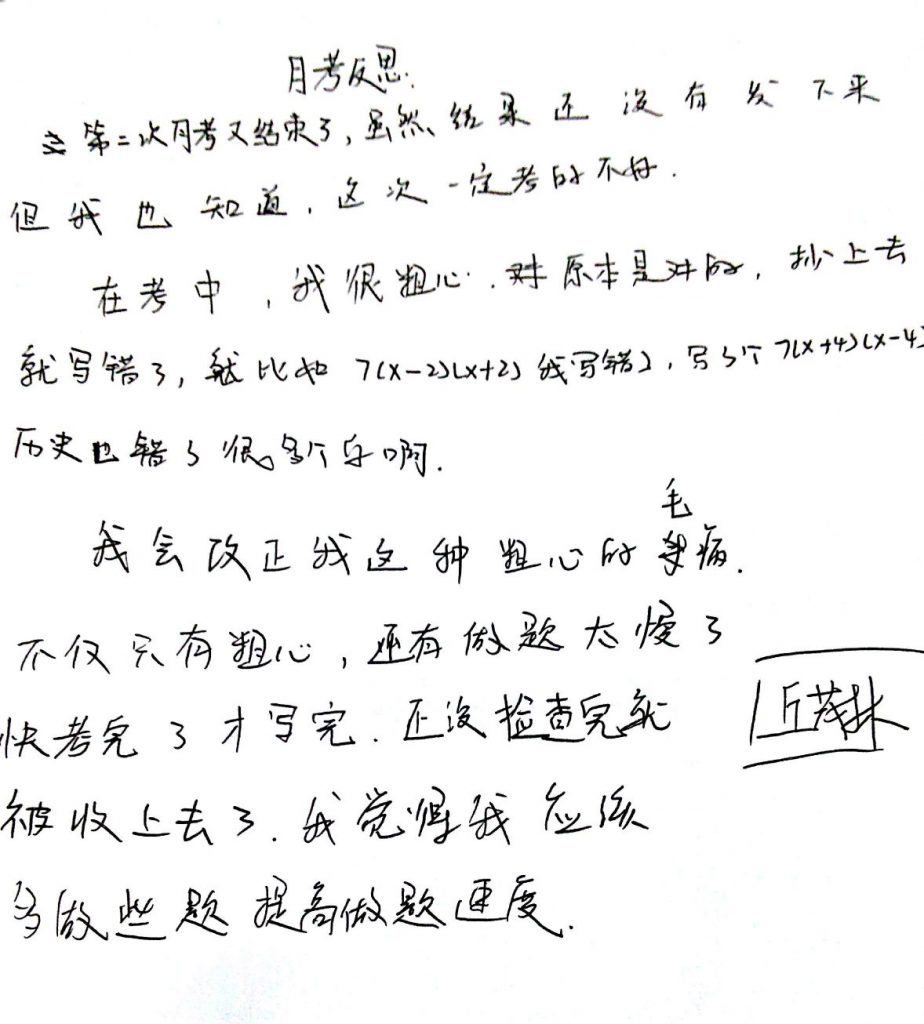 月考反思.
第二次月考又结束了,虽然结果还没有发下来
但我也知道,这次一定考的不好.
在考中,我很粗心.原本是对的,抄上去
就写错了,就比如 7(x-2)(x+2) 我写错了,写了个 7(x+4)(x-4)
历史也错了很多个字啊.
我会改正我这种粗心的毛病.
不仅只有粗心,还有做题太慢了
快考完了才写完.还没检查完就
丘茂林
被收上去了.我觉得我应该
多做些题提高做题速度.